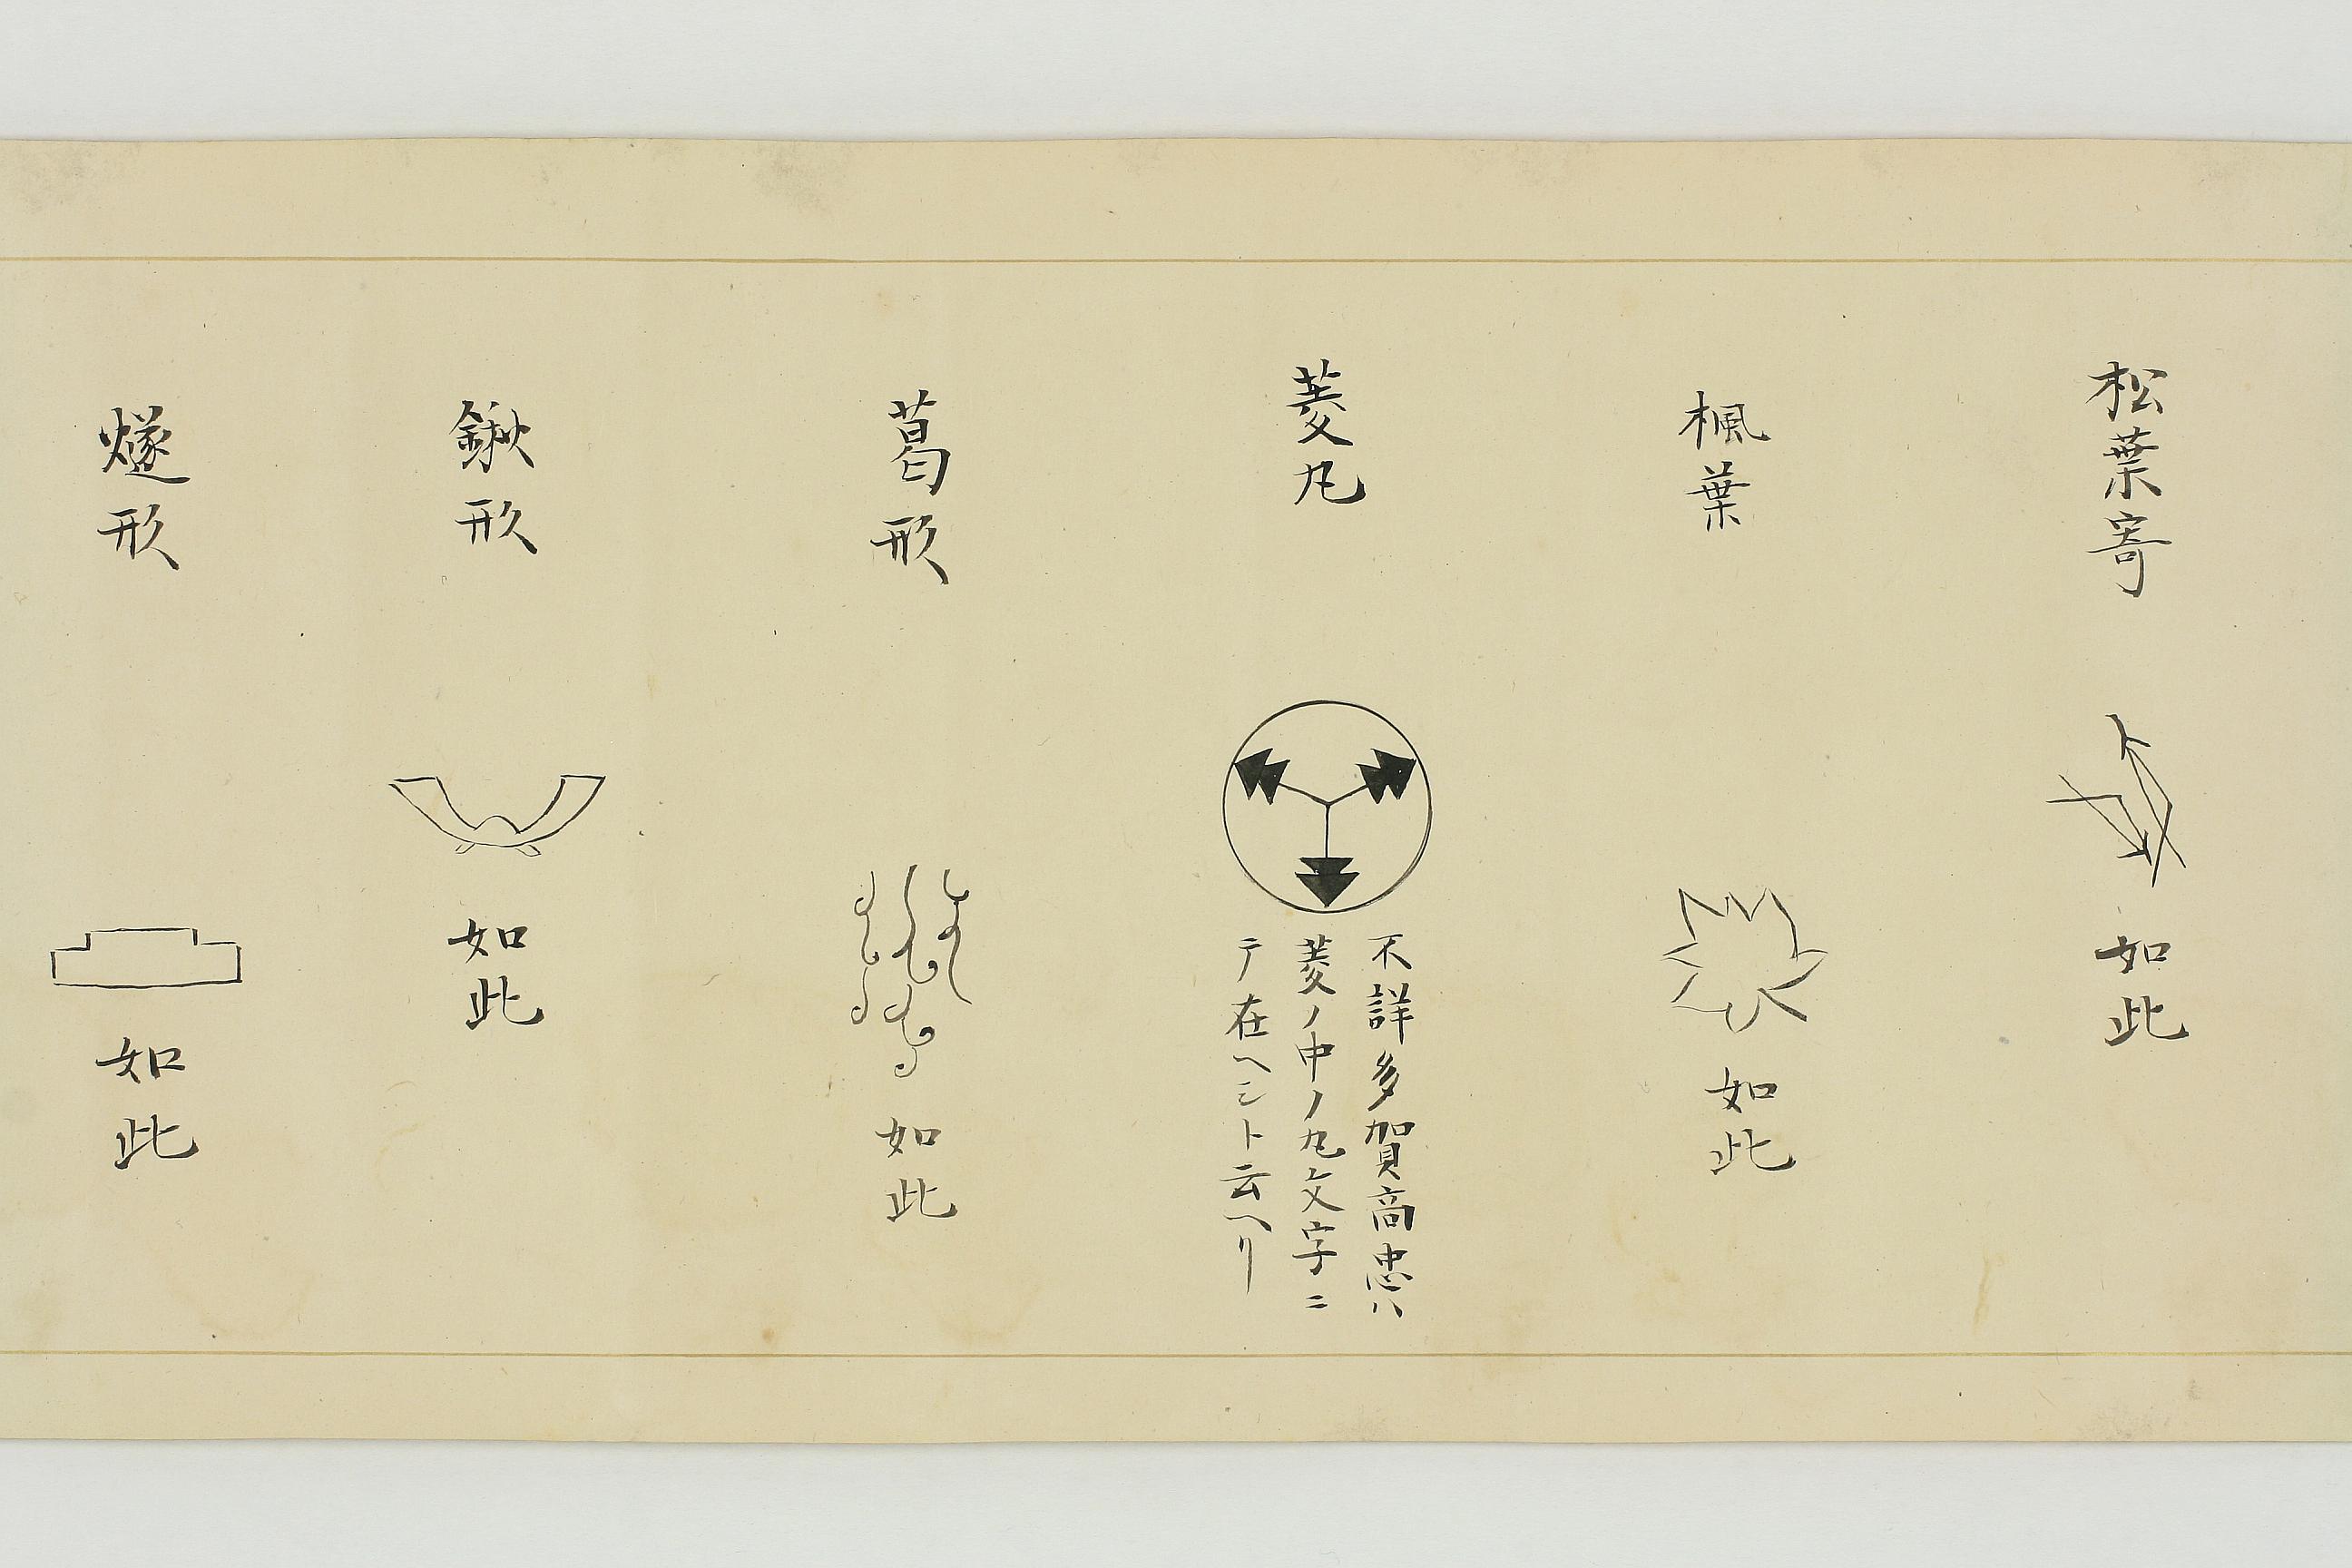 松葉寄
如此
楓葉
如此
菱丸
不詳多賀高忠ハ
菱ノ中ノ丸文字ニ
テ在ヘシト云ヘリ
葛形
如此
鍬形
如此
燧形
如此